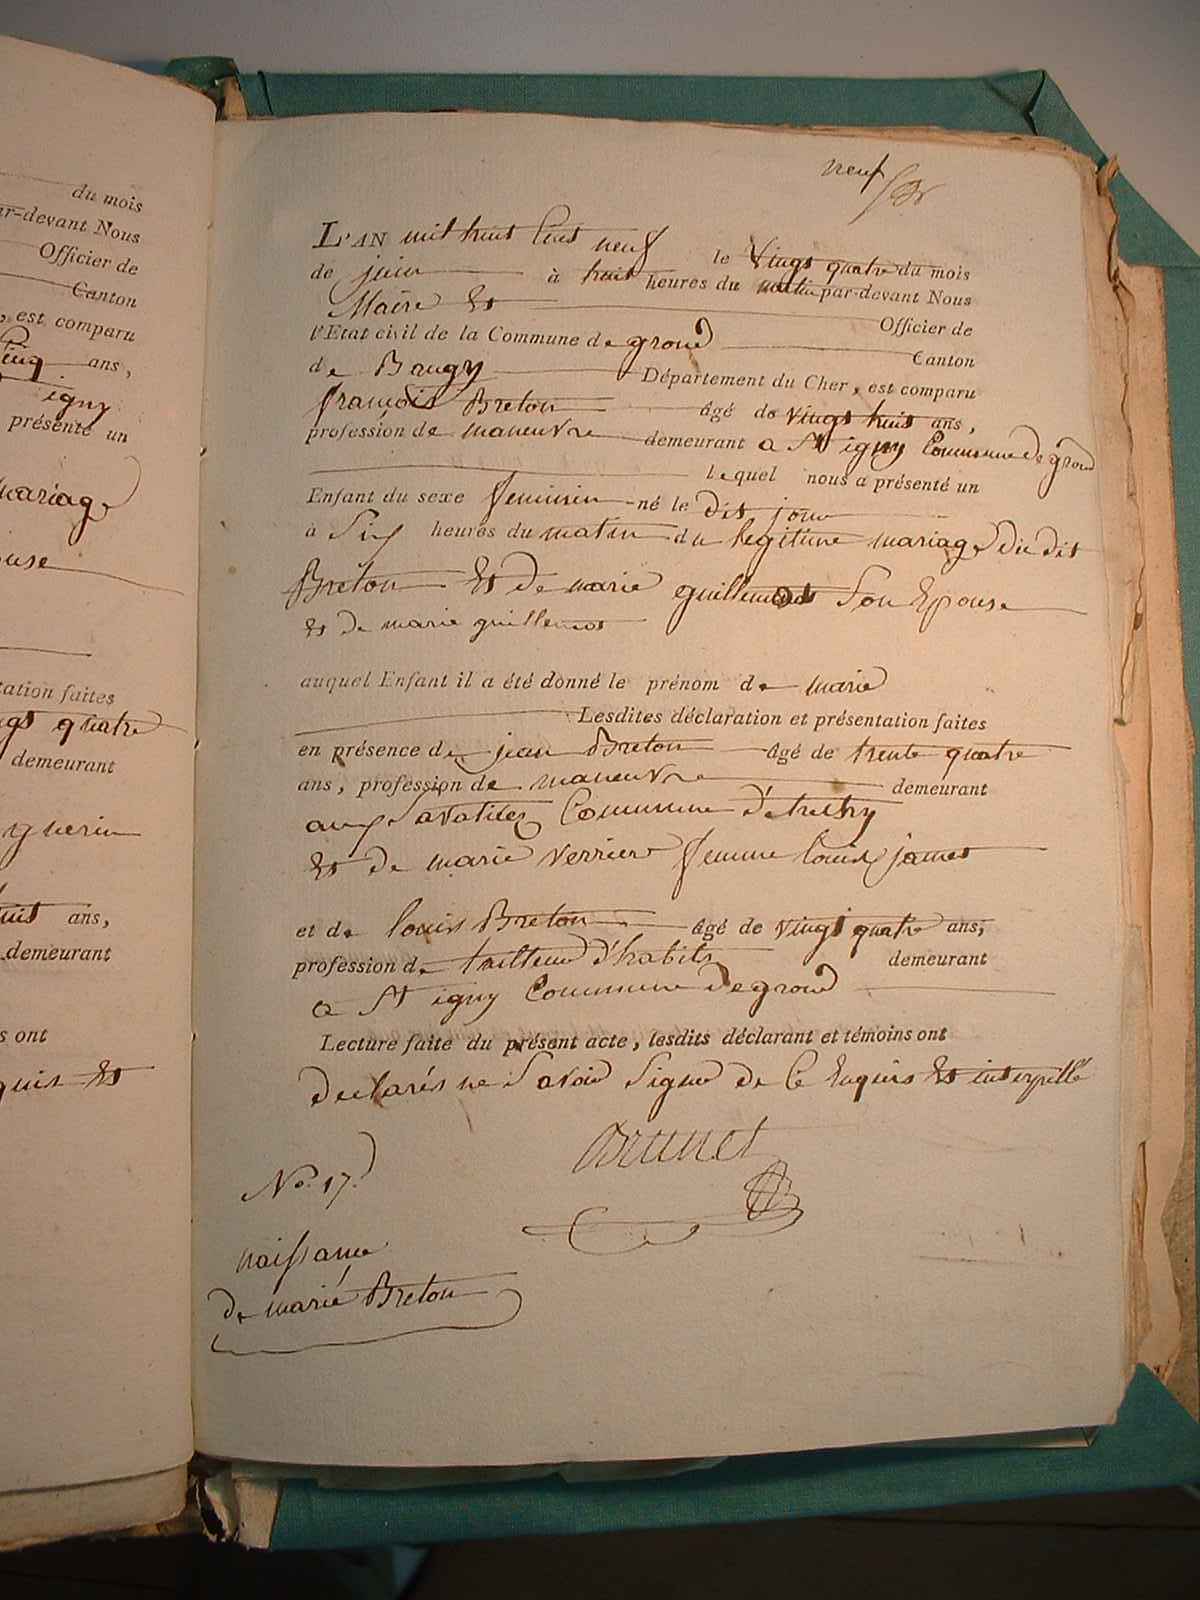 du mois
ar-devant Nous
Officier de
Canton
, est comparu
Cinq ans,
igny
présenté un
mariage
ouse
tation faites
ngt quatre
demeurant
guerin
huit ans,
demeurant
s ont
quis Et
neuf
L'AN mil huit Cent neuf le Vingt quatre du mois
de juin à huit heures du matin par-devant Nous
Maire Et Officier de
l'Etat civil de la Commune de grond Canton
de Baugy Département du Cher, est comparu
françois Breton âgé de vingt huit ans,
profession de maneuvre demeurant a St igny Commune de grond
lequel nous a présenté un
Enfant du sexe feminin né le dit jour
à Six heures du matin du legitime mariage du dit
Breton Et de marie guillemot Son Epouse
Et de marie guillemot
auquel Enfant il a été donné le prénom de marie
Lesdites déclaration et présentation faites
en présence de jean Breton âgé de trente quatre
ans, profession de maneuvre demeurant
aux Savatiers Commune
Et de marie verriere femme louis james
et de louis Breton âgé de vingt quatre ans,
profession de tailleur d'habits demeurant
a St igny Commune de grond
Lecture faite du présent acte, lesdits déclarant et témoins ont
declarés ne Savoir Signer de Ce Enquis Et interpellé
Brunet
No. 17.
naissance
de marie Breton